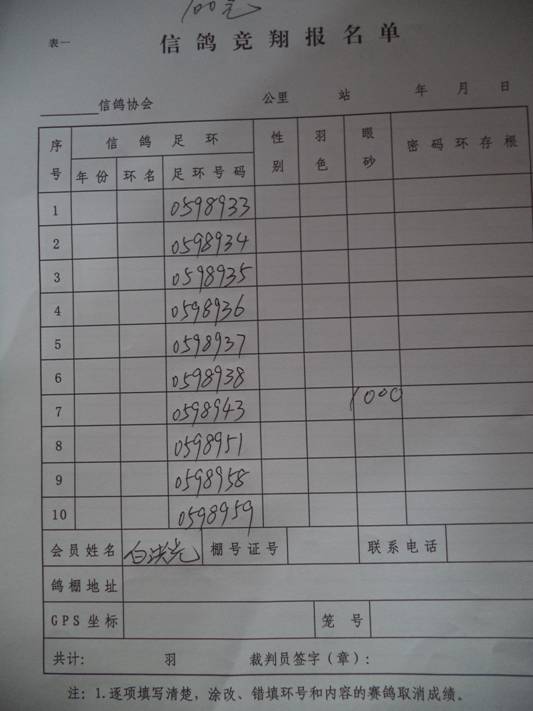 100元
表一
信鸽竞翔报名单
信鸽协会 公里 站 年 月 日
序号 信鸽足环 性别 羽色 眼砂 密码环存根
年份 环名 足环号码
1 0598933
2 0598934
3 0598935
4 0598936
5 0598937
6 0598938
7 0598943 1000
8 0598951
9 0598958
10 0598959
会员姓名 白 棚号证号 联系电话
鸽棚地址
GPS坐标 笼号
共计: 羽 裁判员签字(章):
注: 1.逐项填写清楚,涂改、错填环号和内容的赛鸽取消成绩。